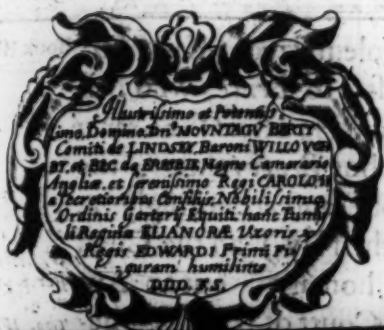 Illustrissimo et Potentiss
imo, Domino, Dnº MOVNTAGV BERTY
Comiti de LINDSEY, Baroni WILLOVGH
BY, et BEC de ERESBIE, Magno Camerario
Angliæ, et serenissimo Regi CAROLO II
a secretioribus Consilijs, Nobilissimiq
Ordinis Garterij Equiti hanc Tumu
li Reginæ ELIANORÆ Uxoris
Regis EDWARDI Primi Fi
guram humilime
DDD.